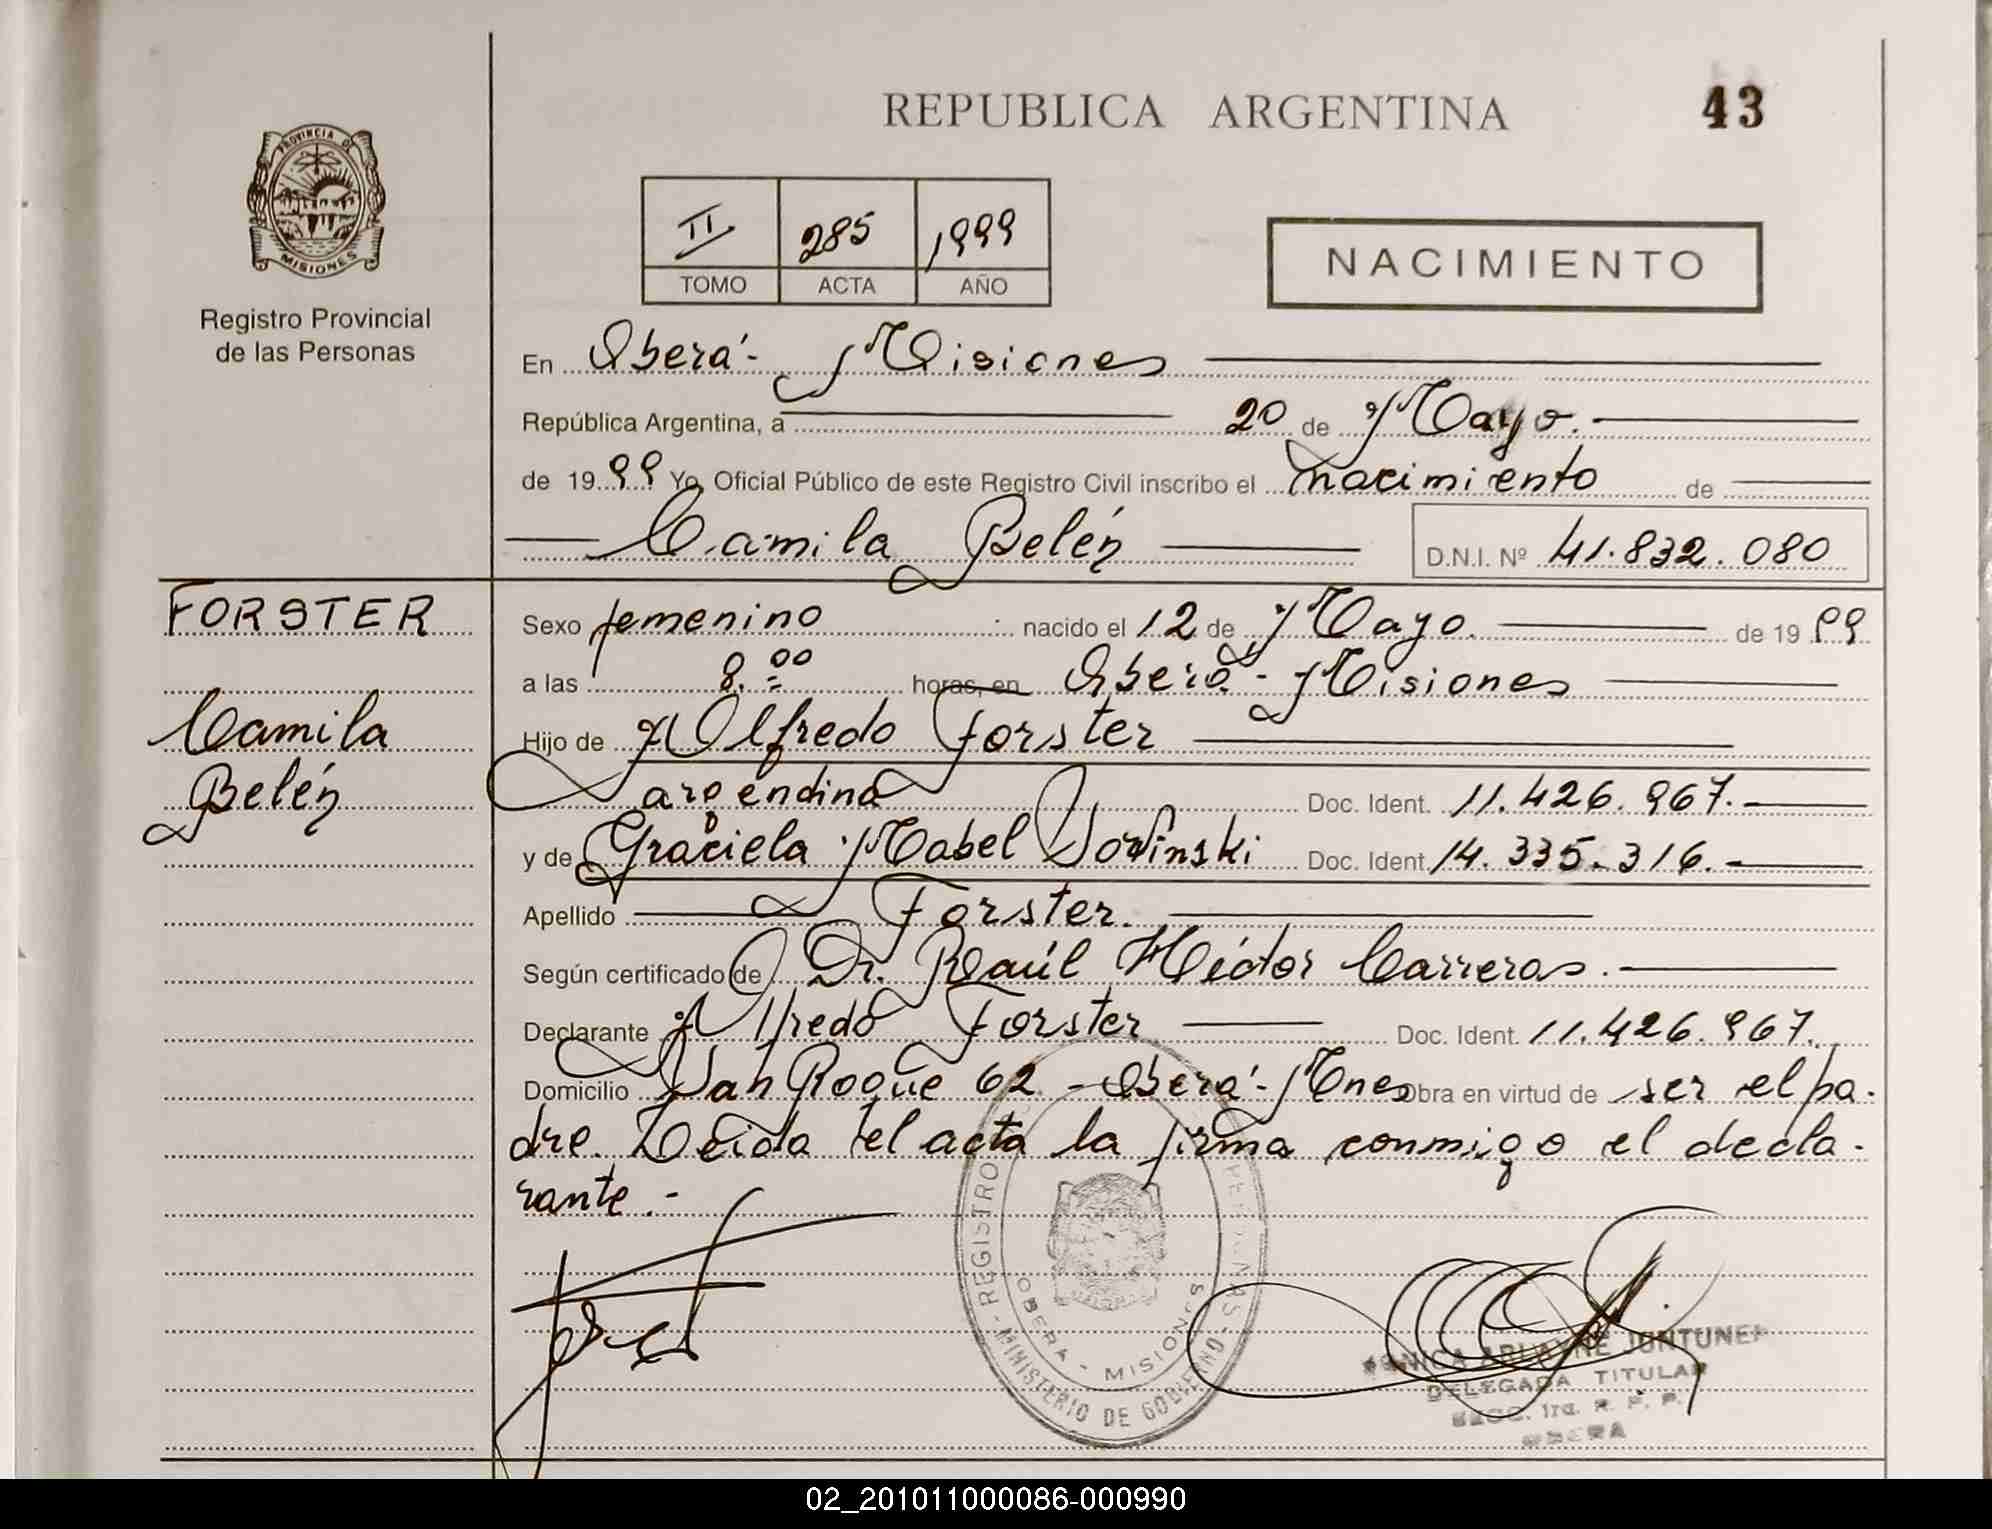 REPUBLICA ARGENTINA
43
PROVINCIA DE
MISIONES
Registro Provincial
de las Personas
II 285 1999
TOMO ACTA AÑO
NACIMIENTO
En Oberá - Misiones
República Argentina, a 20 de Mayo.
de 1999 Yo, Oficial Público de este Registro Civil inscribo el nacimiento de
Camila Belén D.N.I. Nº 41.832.080
FORSTER
Camila
Belén
Sexo femenino nacido el 12 de Mayo. de 1999
a las 8.00 horas, en Oberá - Misiones
Hijo de Alfredo Forster
argentina Doc. Ident. 11.426.967.
y de Graciela Mabel Doc. Ident. 14.335.316.
Apellido Forster.
Según certificado de Dr. Raúl Héctor Carreras.
Declarante Alfredo Forster Doc. Ident. 11.426.967.
Domicilio San Roque 62 - Oberá - Mnes Obra en virtud de ser el pa-
dre. Leida el acta la firma conmigo el decla-
rante.-
REGISTRO
OBERA - MISIONES
MINISTERIO DE GOBIERNO
MONICA JUNTUNEN
DELEGADA TITULAR
SECC. 1ra. R. P. P.
OBERA
02_201011000086-000990